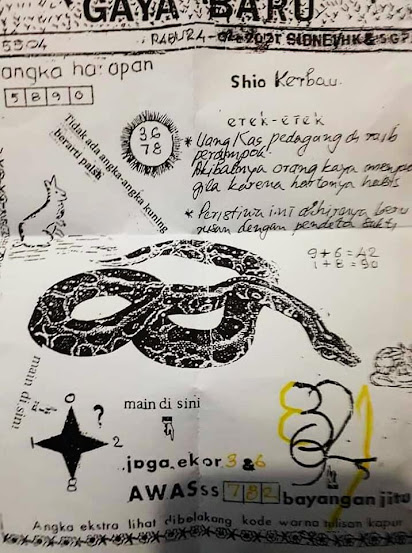 GAYA BARU
5504
RABU
SIDNEY HK & SGP
angka harapan
5 8 9 0
Shio Kerbau
Tidak ada angka-angka kuning
berarti palsu
36
78
erek-erek
* Uang Kas pedagang di
Akibatnya orang kaya
gila karena hartanya habis
* Peristiwa ini
dengan pendeta sakti
9+6=42
1+8=90
main di sini
0
?
2
8
main di sini
jaga ekor 3 & 6
AWASss 782 bayangan jitu
Angka ekstra lihat dibelakang kode warna tulisan kapur